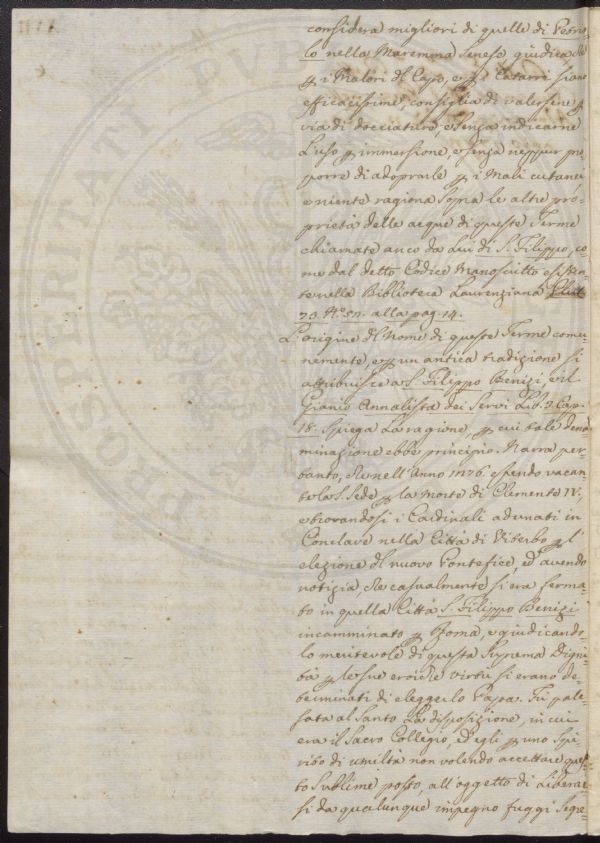 considera migliori di quelle di Petrio-
lo nella Maremma Senese giudica che
p i Malori del Capo, e p i Catarri siano
efficacissime consiglia di valersene p
via di docciatura, e senza indicarne
l'uso p immersione, e senza neppur pro-
porre di adoprarle p i Mali cutanei
e niente ragiona sopra le altre pro-
prietà delle acque di queste Terme
chiamate anco da Lui di S. Filippo, co-
me dal detto Codice Manoscritto esisten-
te nella Biblioteca Laurenziana Plut.
73. N°. alla pag. 14.
L'origine del Nome di queste Terme comu-
nemente, e p un antica tradizione si
attribuisce a S. Filippo Benizi, e il
Gianio Annalista dei Servi Lib. Cap.
18. Spiega la ragione, p cui tale deno-
minazione ebbe principio. Narra per-
tanto, che nell'Anno essendo vacan-
te la S. Sede p la Morte di Clemente IV,
e trovandosi i Cardinali adunati in
Conclave nella Città di Viterbo p l'
elezione del nuovo Pontefice, ed avendo
notizia, che casualmente si era ferma-
to in quella Città S. Filippo Benizi
incamminato p Roma, e giudicando-
lo meritevole di questa Suprema Digni-
tà p le sue eroiche virtù si erano de-
terminati di eleggerlo Papa. Fù pale-
sata al Santo la disposizione, in cui
era il Sacro Collegio, ed egli p uno Spi-
rito di umiltà non volendo accettare ques-
to sublime posto, all'oggetto di liberar-
si da qualunque impegno fuggì segre-